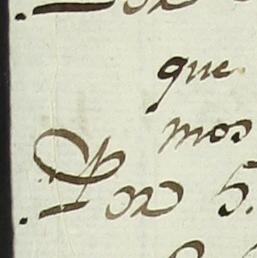 que
mos
Por 5.